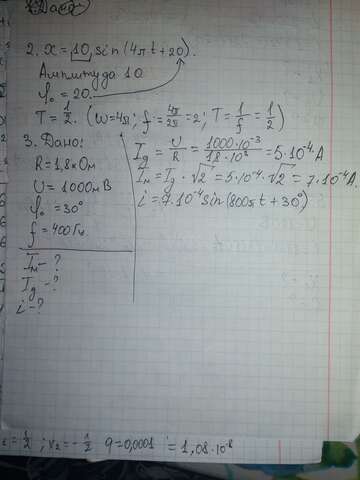 2. x = 10 sin (4πt + 20).
Амплитуда 10
φ₀ = 20.
T = 1/2. (ω = 4π; f = 4π/2π = 2; T = 1/f = 1/2)
3. Дано:
R = 1,8 кОм
U = 1000 мВ
φ₀ = 30°
f = 400 Гц
Iм - ?
Iд - ?
i - ?
Iд = U/R = 1000·10⁻³/1,8·10³ = 5·10⁻⁴ A
Iм = Iд · √2 = 5·10⁻⁴ · √2 = 7·10⁻⁴ A.
i = 7·10⁻⁴ sin (800πt + 30°)
= 1/2 ; v₂ = - 1/2 q = 0,0001 = 1,08·10⁻⁸